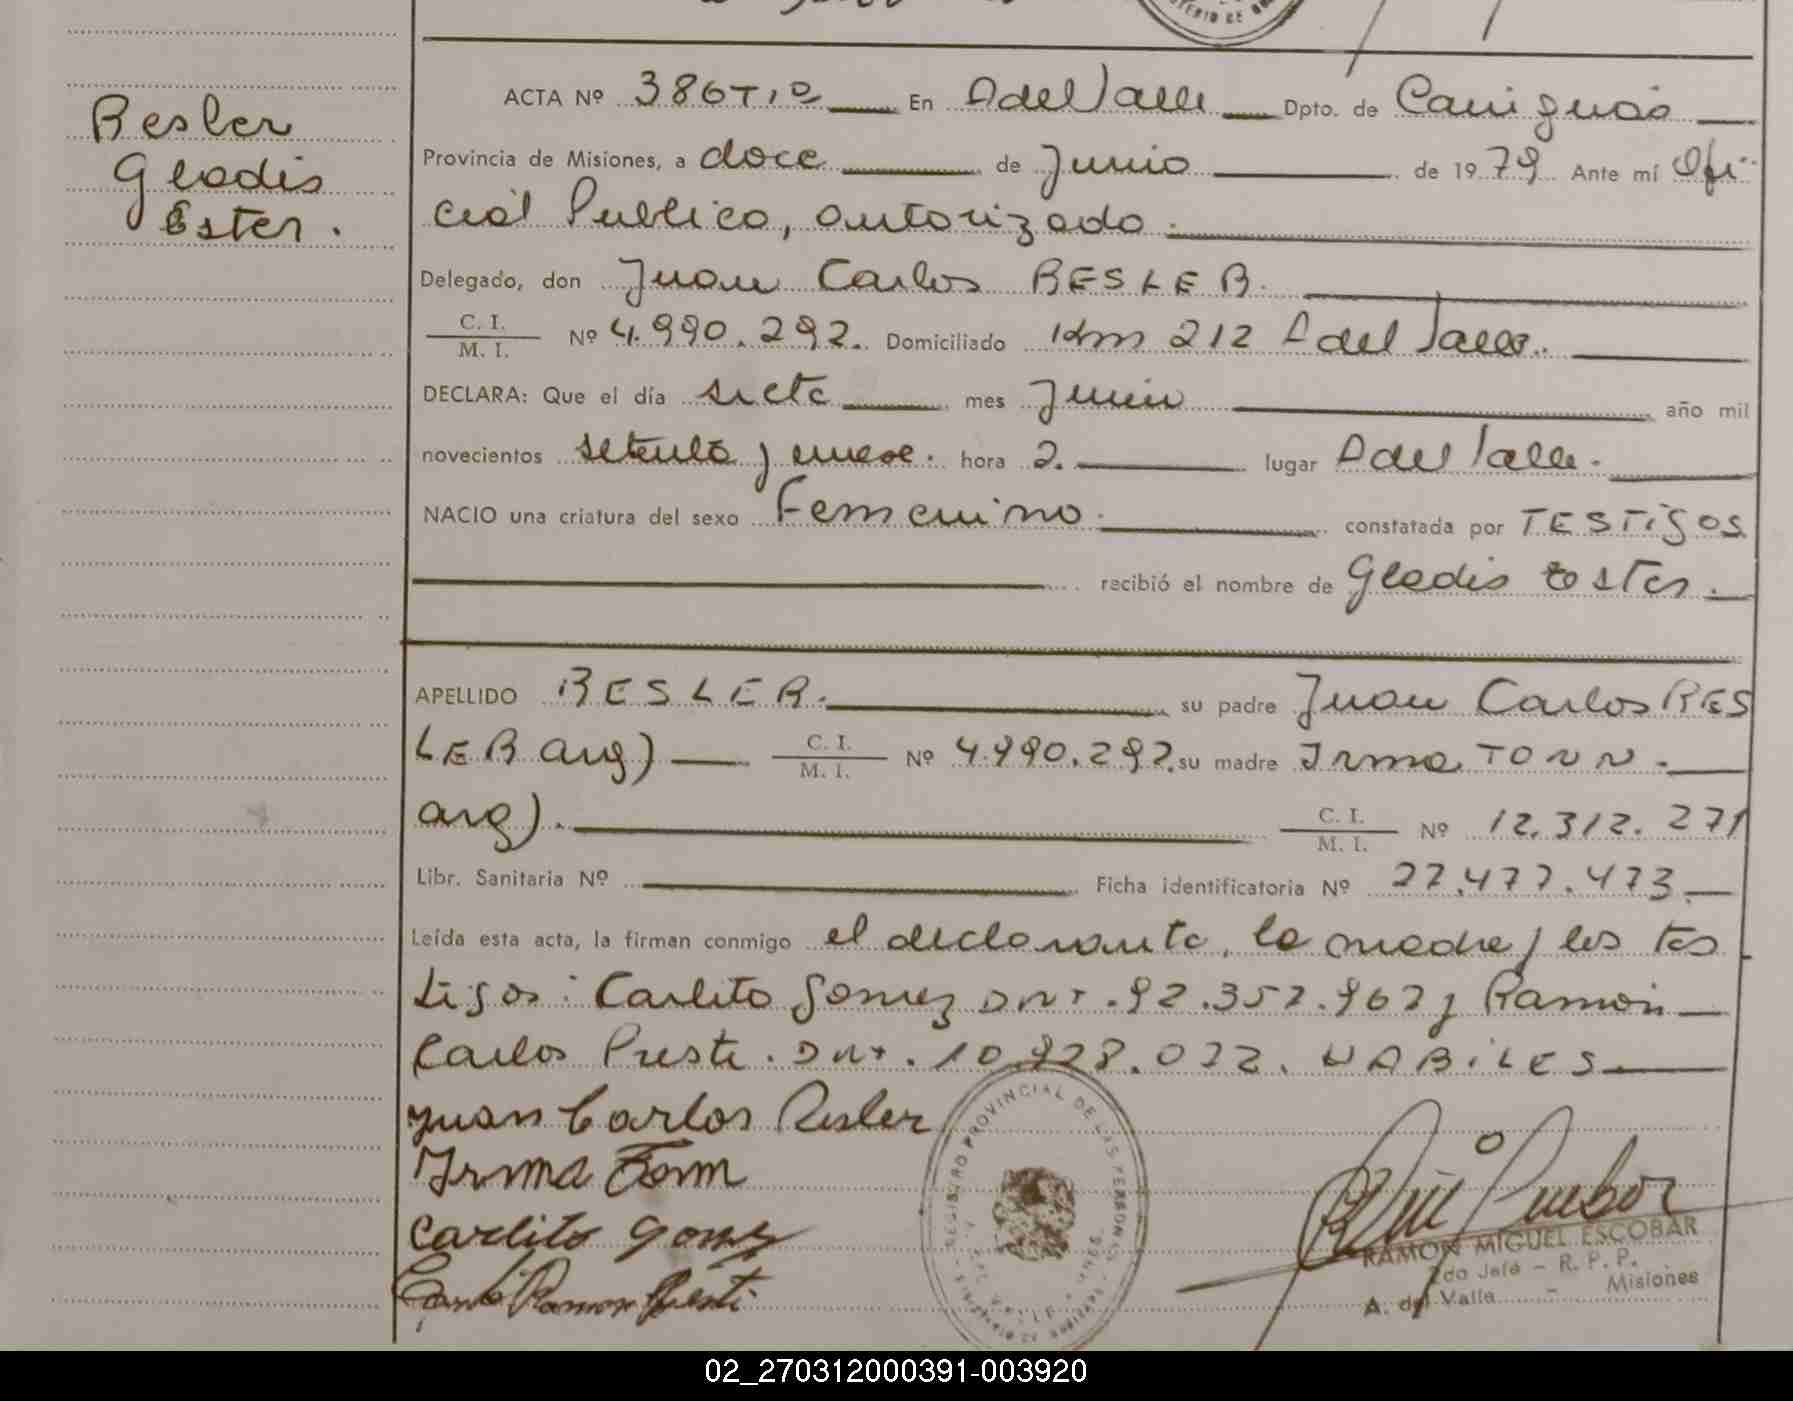 Besler
Gladis
Ester.
ACTA Nº 386 T:1º En A del Valle Dpto. de Cainguás
Provincia de Misiones, a doce de Junio de 1979 Ante mí Ofi-
cial Publico, autorizado.
Delegado, don Juan Carlos BESLER.
C. I.
M. I. Nº 4.990.292. Domiciliado Km 212 A del Valle.
DECLARA: Que el día siete mes Junio año mil
novecientos setenta y nueve. hora 2. lugar A del Valle.
NACIO una criatura del sexo Femenino. constatada por TESTigos
recibió el nombre de Gladis Ester.
APELLIDO BESLER. su padre Juan Carlos BES
LER arg) C. I.
M. I. Nº 4.990.292. su madre Irma TONN.
arg). C. I.
M. I. Nº 12.312.271
Libr. Sanitaria Nº Ficha identificatoria Nº 27.477.473.
Leída esta acta, la firman conmigo el declarante, la madre y los tes
tigos: Carlito Gomez DNI. 92.357.967 y Ramón
Carlos Preste. DNI. 10.928.072. HABiLES
Juan Carlos Besler
Irma Tonn
Carlito Gomez
REGISTRO PROVINCIAL DE LAS PERSONAS
RAMON MIGUEL ESCOBAR
2do Jefe - R. P. P.
A. del Valle - Misiones
02_270312000391-003920